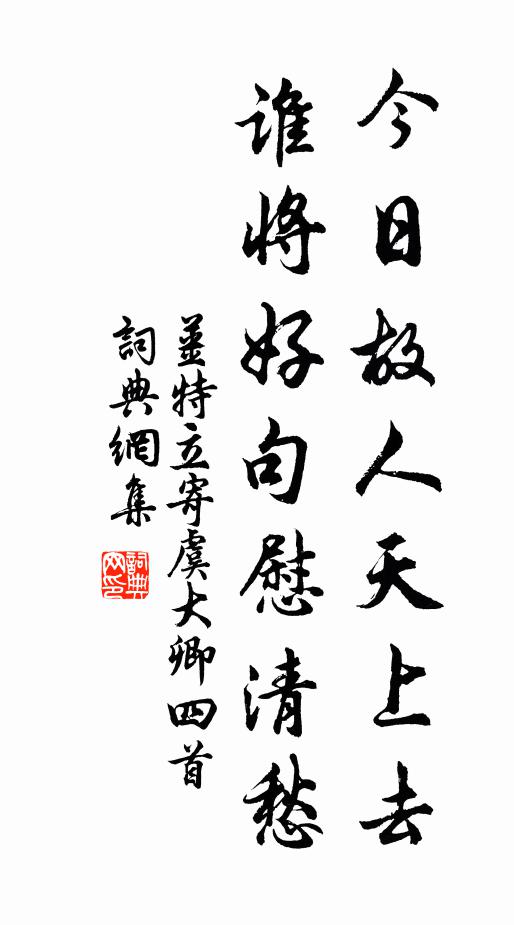 今日故人天上去
誰將好句慰清愁
薑特立寄虞大卿四首
詞典網集
詞典网印